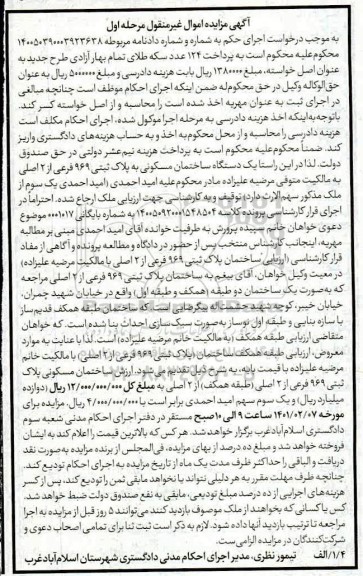 آگهی مزایده اموال غیرمنقول مرحله اول
به موجب درخواست اجرای حکم به شماره و شماره دادنامه مربوطه ۱۴۰۰۵۰۳۹۰۰۰۳۹۲۳۶۳۸
محکوم‌علیه محکوم است به پرداخت ۱۲۴ عدد سکه طلای تمام بهار آزادی طرح جدید به
عنوان اصل خواسته، مبلغ ۱۳۸۰۰۰۰۰ ریال بابت هزینه دادرسی و مبلغ ۵۰۰۰۰۰۰ ریال به عنوان
حق‌الوکاله وکیل در حق محکوم‌له ضمن اینکه اجرای احکام موظف است چنانچه مبالغی
در اجرای ثبت به عنوان مهریه اخذ شده است را محاسبه و از اصل خواسته کسر کند.
باتوجه‌به‌اینکه اخذ هزینه دادرسی به مرحله اجرا موکول شده، اجرای احکام مکلف است
هزینه دادرسی را محاسبه و از محل محکوم‌به اخذ و به حساب هزینه‌های دادگستری واریز
کند. ضمناً محکوم‌علیه محکوم است به پرداخت هزینه نیم‌عشر دولتی در حق صندوق
دولت. لذا در این راستا یک دستگاه ساختمان مسکونی به پلاک ثبتی ۹۶۹ فرعی از ۲ اصلی
به مالکیت متوفی مرضیه علیزاده مادر محکوم‌علیه امید احمدی (امید احمدی یک سوم از
ملک مذکور سهم‌الارث دارد) توقیف و به کارشناسی جهت ارزیابی ملک ارجاع شده. احتراماً در
اجرای قرار کارشناسی پرونده کلاسه ۱۴۰۰۵۰۹۲۰۰۰۱۵۴۸۵۰۴ به شماره بایگانی ۰۰۰۱۰۱۷ موضوع
دعوی خواهان خانم سپیده پرورش به طرفیت خوانده آقای امید احمدی مبنی بر مطالبه
مهریه، اینجانب کارشناس منتخب پس از حضور در دادگاه و مطالعه پرونده و آگاهی از مفاد
قرار کارشناسی (ارزیابی ساختمان پلاک ثبتی ۹۶۹ فرعی از ۲ اصلی با مالکیت مرضیه علیزاده)
در معیت وکیل خواهان، آقای بیغم به ساختمان پلاک ثبتی ۹۶۹ فرعی از ۲ اصلی مراجعه
که به‌صورت یک ساختمان دو طبقه (همکف و طبقه اول) واقع در خیابان شهید چمران،
خیابان خیبر، کوچه شهید حشمت‌اله است که ساختمان طبقه همکف قدیم‌ساز
با سازه بنایی و طبقه اول نوساز به‌صورت سبک‌سازی احداث بنا شده است. که خواهان
متقاضی ارزیابی طبقه همکف (به مالکیت خانم مرضیه علیزاده) است. لذا با عنایت به موارد
معروض، ارزیابی طبقه همکف ساختمان (پلاک ثبتی ۹۶۹ فرعی از ۲ اصلی) با مالکیت خانم
مرضیه علیزاده با قیمت پایه، به شرح ذیل تقدیم می‌شود. ارزش ساختمان مسکونی پلاک
ثبتی ۹۶۹ فرعی از ۲ اصلی (طبقه همکف) از ۲ اصلی به مبلغ کل ۱۲/۰۰۰/۰۰۰/۰۰۰ ریال (دوازده
میلیارد ریال) و یک سوم سهم امید احمدی برابر است با ۴/۰۰۰/۰۰۰/۰۰۰ ریال، مزایده برای
مورخه ۱۴۰۱/۰۲/۰۷ ساعت ۹ الی ۱۰ صبح مستقر در دفتر اجرای احکام مدنی شعبه سوم
دادگستری اسلام‌آبادغرب برگزار خواهد شد. هر کس که بالاترین قیمت را اعلام کند به ایشان
فروخته خواهد شد و مبلغ ده درصد از بهای مزایده، فی‌المجلس از برنده مزایده به‌صورت نقد
دریافت و الباقی را حداکثر ظرف مدت یک ماه از تاریخ مزایده به اجرای احکام تودیع کند.
چنانچه ظرف مهلت مقرر به هر دلیلی نتواند یا نخواهد مابقی ثمن را تودیع کند، پس از کسر
هزینه‌های اجرایی از ده درصد مبلغ تودیعی، مابقی به نفع صندوق دولت ضبط خواهد شد.
کس یا کسانی که بخواهند از ملک موصوف بازدید کنند می‌توانند ۵ روز قبل از مزایده به اجرا
مراجعه تا ترتیب بازدید آنها داده شود. لازم به ذکر است ثبت ثنا برای تمامی اصحاب دعوی و
شرکت‌کنندگان در مزایده الزامی است.
۱/۴/الف تیمور نظری، مدیر اجرای احکام مدنی دادگستری شهرستان اسلام‌آبادغرب